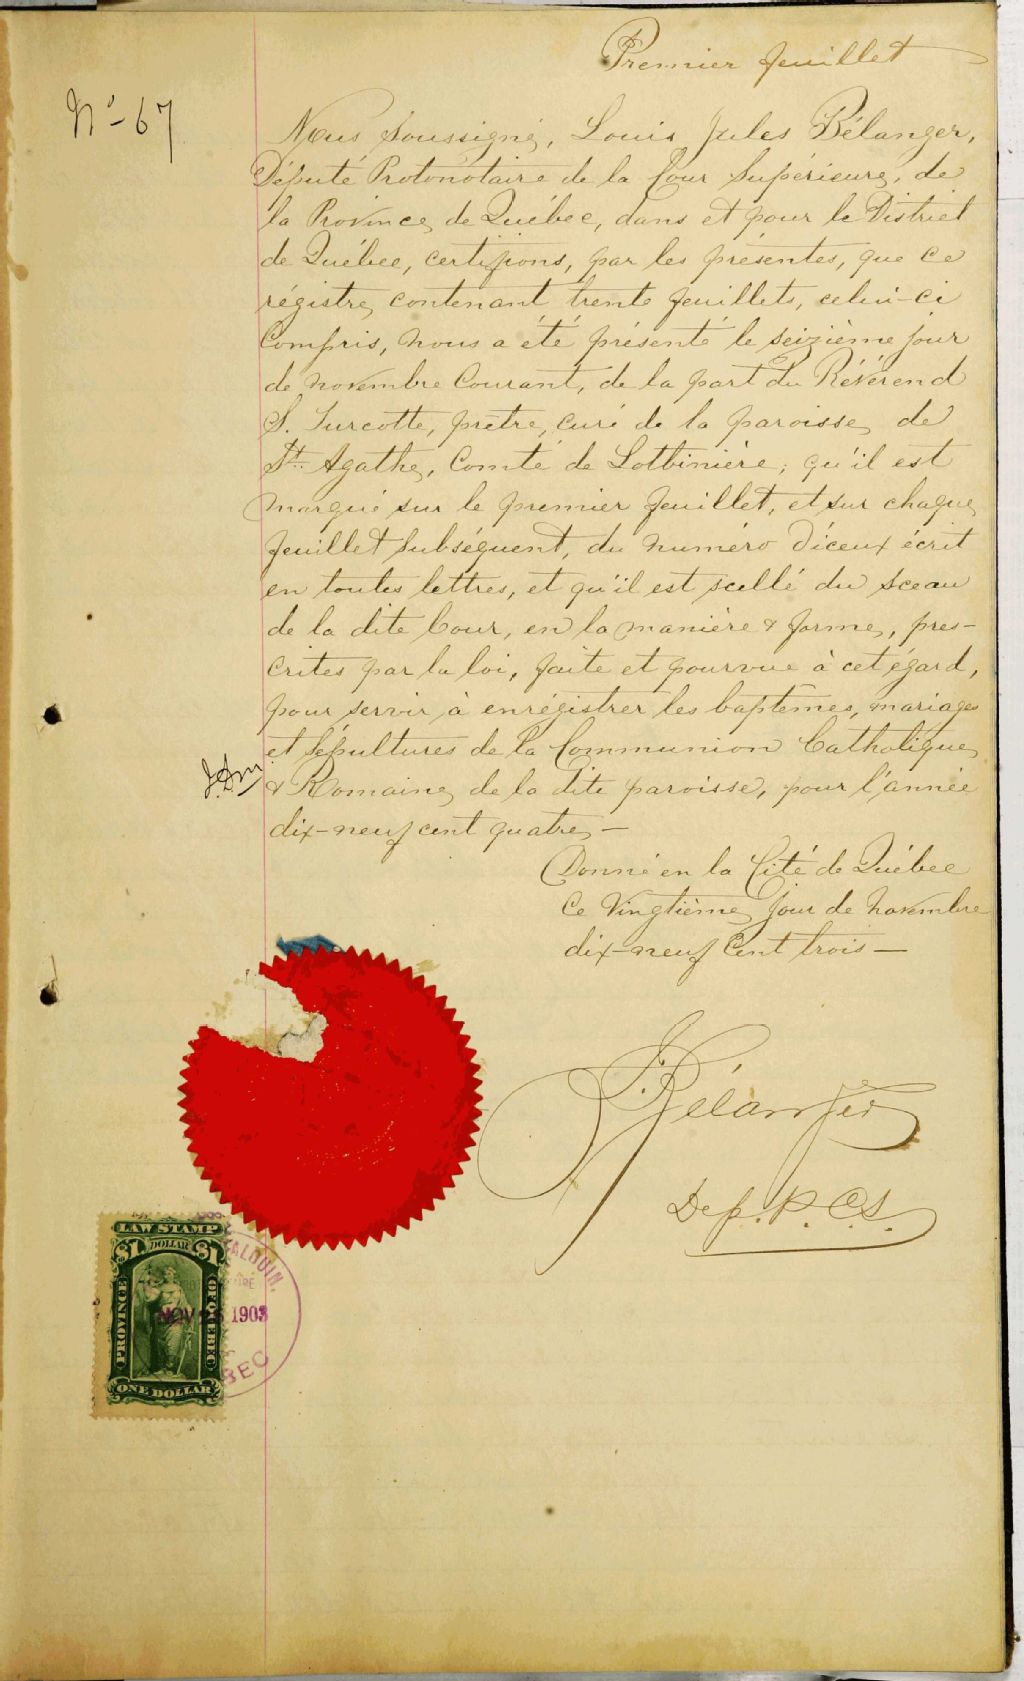 Premier feuillet
No - 67
Nous Soussigné, Louis Jules Bélanger,
Député Protonotaire de la Cour Supérieure, de
la Province, de Québec, dans et pour le District
de Québec, certifions, par les présentes, que ce
régistre, contenant trente feuillets, celui-ci
Compris, nous a été présenté le seizième jour
de novembre Courant, de la part du Révérend
S. Turcotte, prêtre, curé de la paroisse, de
Ste. Agathe, Comté de Lotbinière; qu'il est
marqué sur le premier feuillet, et sur chaque
feuillet subséquent, du numéro d'iceux écrit
en toutes lettres, et qu'il est scellé du sceau
de la dite Cour, en la manière & forme, pres-
crites par la loi, faite et pourvue à cet égard,
pour servir à enrégistrer les baptêmes, mariages
et sépultures de la Communion Catholique
& Romaine, de la dite paroisse, pour l'année
dix-neuf cent quatre, —
Donné en la Cité de Québec
Ce Vingtième, jour de Novembre
dix-neuf Cent trois —
Bélanger
Dep. P. C. S.
LAW STAMP
$1 DOLLAR $1
PROVINCE OF QUEBEC
NOV 1903
ONE DOLLAR